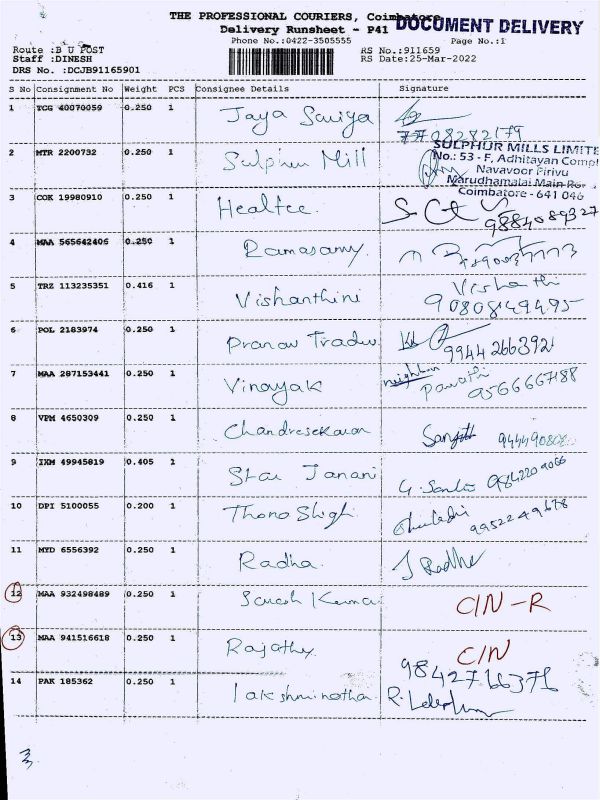 THE PROFESSIONAL COURIERS, Coimbatore
DOCUMENT DELIVERY
Delivery Runsheet - P41
Phone No.:0422-3505555
Page No.:1
Route :B U POST
RS No.:911659
Staff :DINESH
RS Date:25-Mar-2022
DRS No. :DCJB91165901
S No Consignment No Weight PCS Consignee Details Signature
1 TCG 40070059 0.250 1 Jaya Saviya
7708282179
SULPHUR MILLS LIMITE
2 MTR 2200732 0.250 1 Sulphur Mill No.: 53 - F, Adhitayan Compl
Navavoor Pirivu
Marudhamalai Main Roa
Coimbatore - 641 046
3 COK 19980910 0.250 1 Healtee.
9884089327
4 MAA 565642406 0.250 1 Ramasamy.
5 TRZ 113235351 0.416 1 Vishanthini Vishanthi
9080849495
6 POL 2183974 0.250 1 Pranav Trader
9944266392
7 MAA 287153441 0.250 1 Vinayak neighbour Parvathi
9566667188
8 VPM 4650309 0.250 1 Chandresekaran
944490808
9 IXM 49945819 0.405 1 Star Janani
9842209066
10 DPI 5100055 0.200 1
9952249678
11 MYD 6556392 0.250 1 Radha. J Radha
12 MAA 932498489 0.250 1 Suresh Kumar C/N-R
13 MAA 941516618 0.250 1 Rajathy. C/N
9842766376
14 PAK 185362 0.250 1 lakshminathan R.